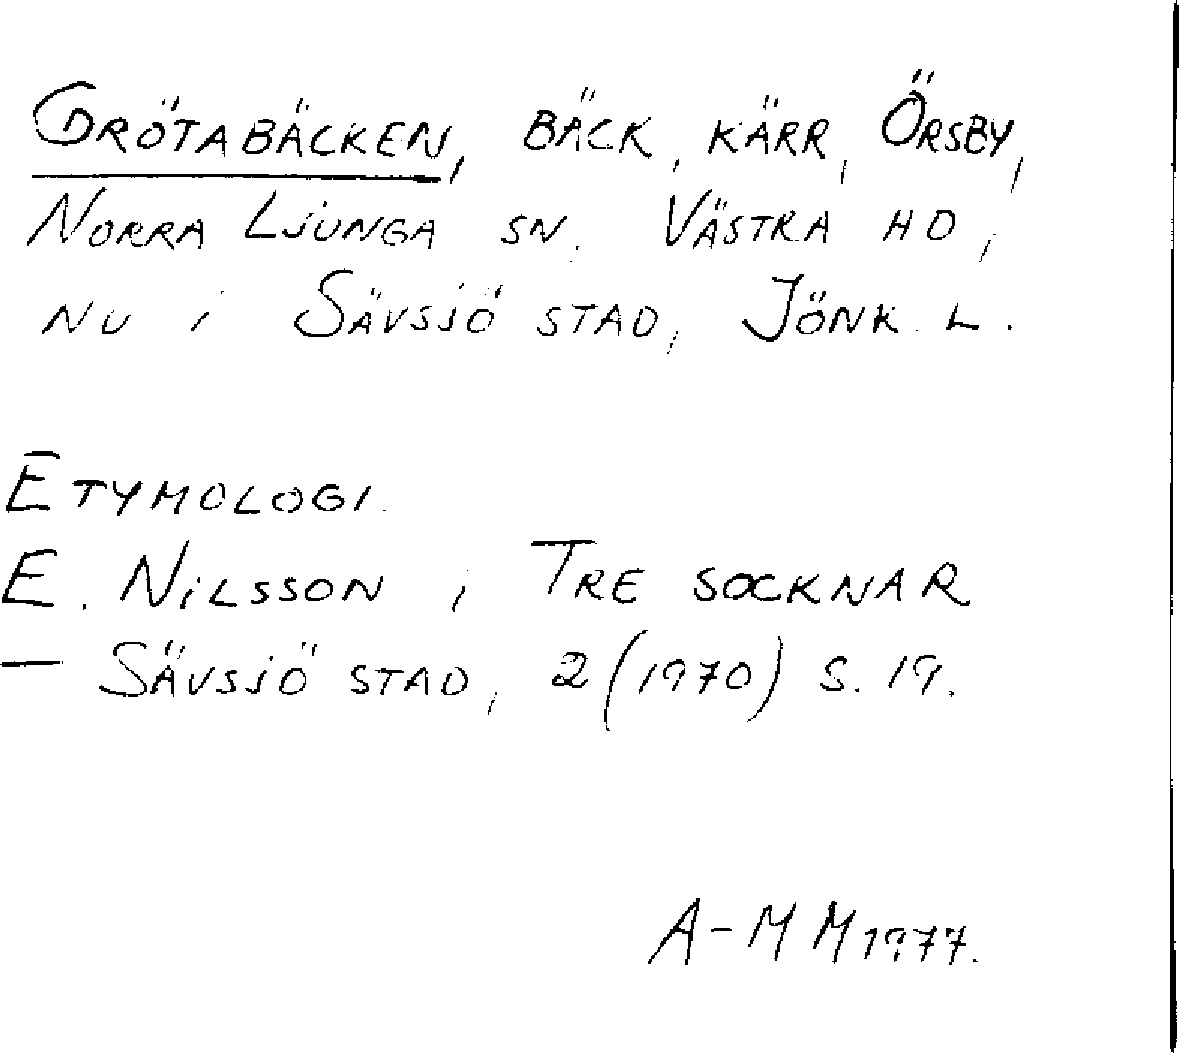 GRÖTABÄCKEN, BÄCK, KÄRR, ÖRSBY,
NORRA LJUNGA SN. VÄSTRA HD,
NU I SÄVSJÖ STAD, JÖNK. L.
ETYMOLOGI.
E. NILSSON I TRE SOCKNAR
— SÄVSJÖ STAD, 2 (1970) S. 19.
A-M M 1977.